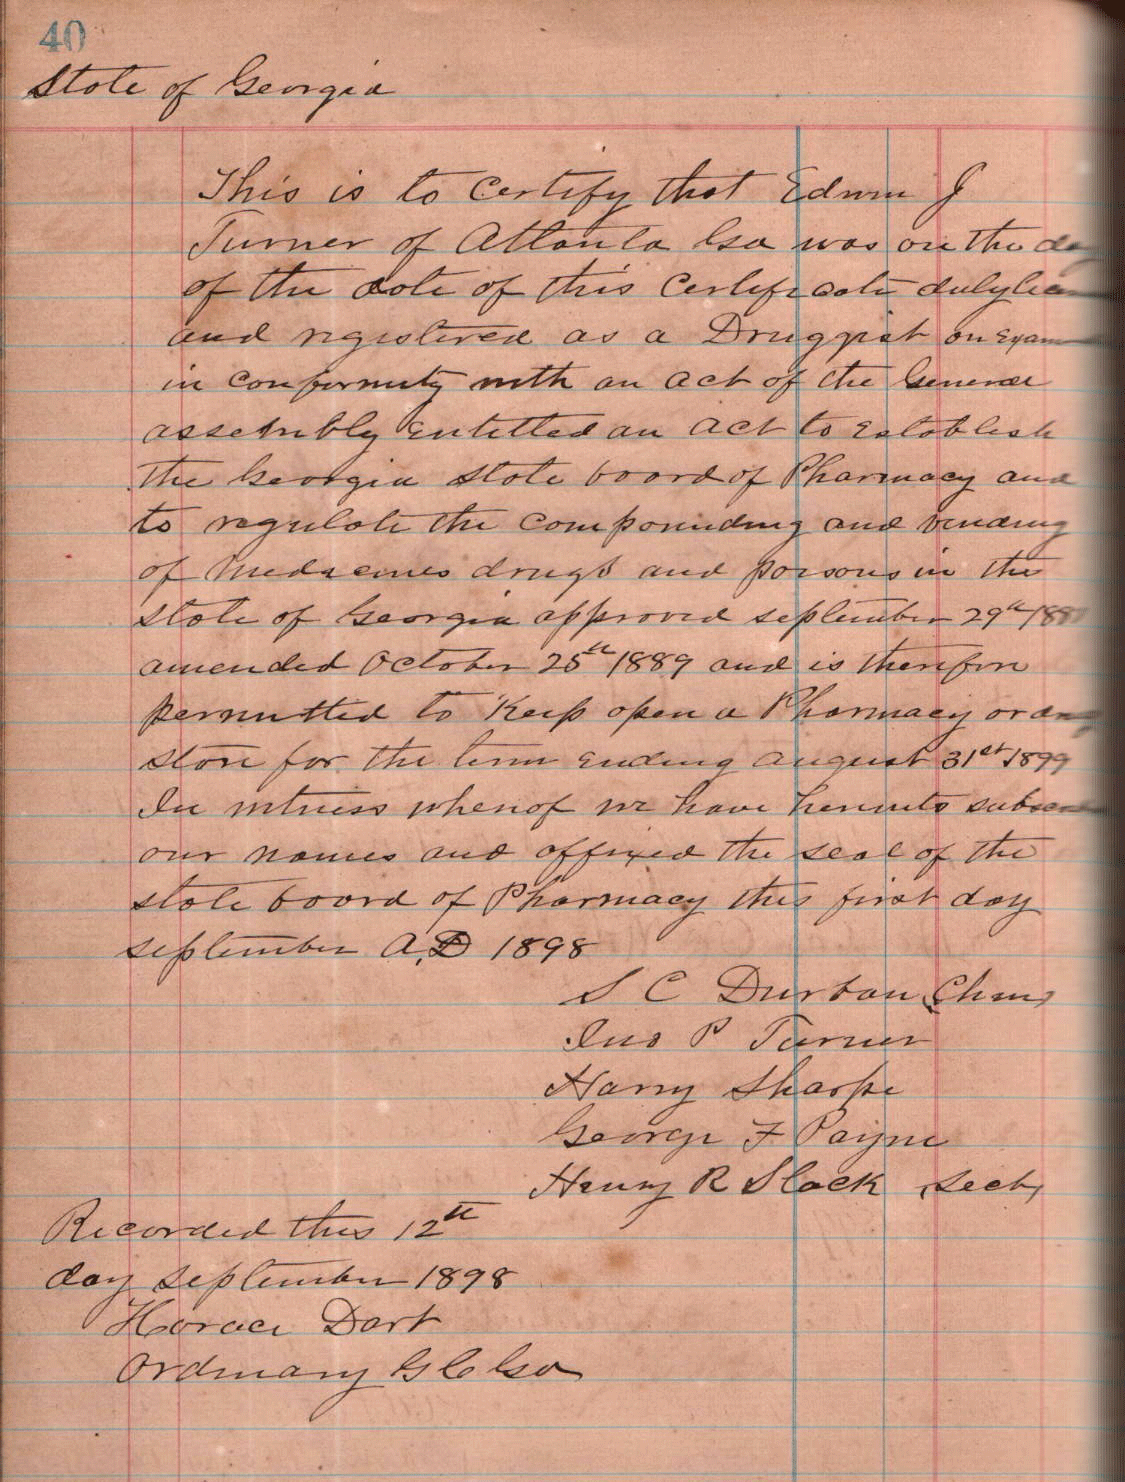 40
State of Georgia
This is to certify that Edwin J
Turner of Atlanta Ga was on the day
of the date of this Certificate duly
and registered as a Druggist on Exam
in conformity with an act of the General
assembly Entitled an act to Establish
the Georgia State board of Pharmacy and
to regulate the compounding and vending
of Medicines drugs and poisons in the
State of Georgia approved september 29th 188
amended October 25th 1889 and is therefore
permitted to Keep open a Pharmacy or drug
store for the term Ending august 31st 1899
In witness whereof we have hereunto
our names and affixed the seal of the
state board of Pharmacy this first day
september A.D 1898
S C Durban Chm,
Jno P Turner
Harry Sharpe
George F Payne
Henry R Slack Secty
Recorded this 12th
day september 1898
Horace Dart
Ordinary G C Ga